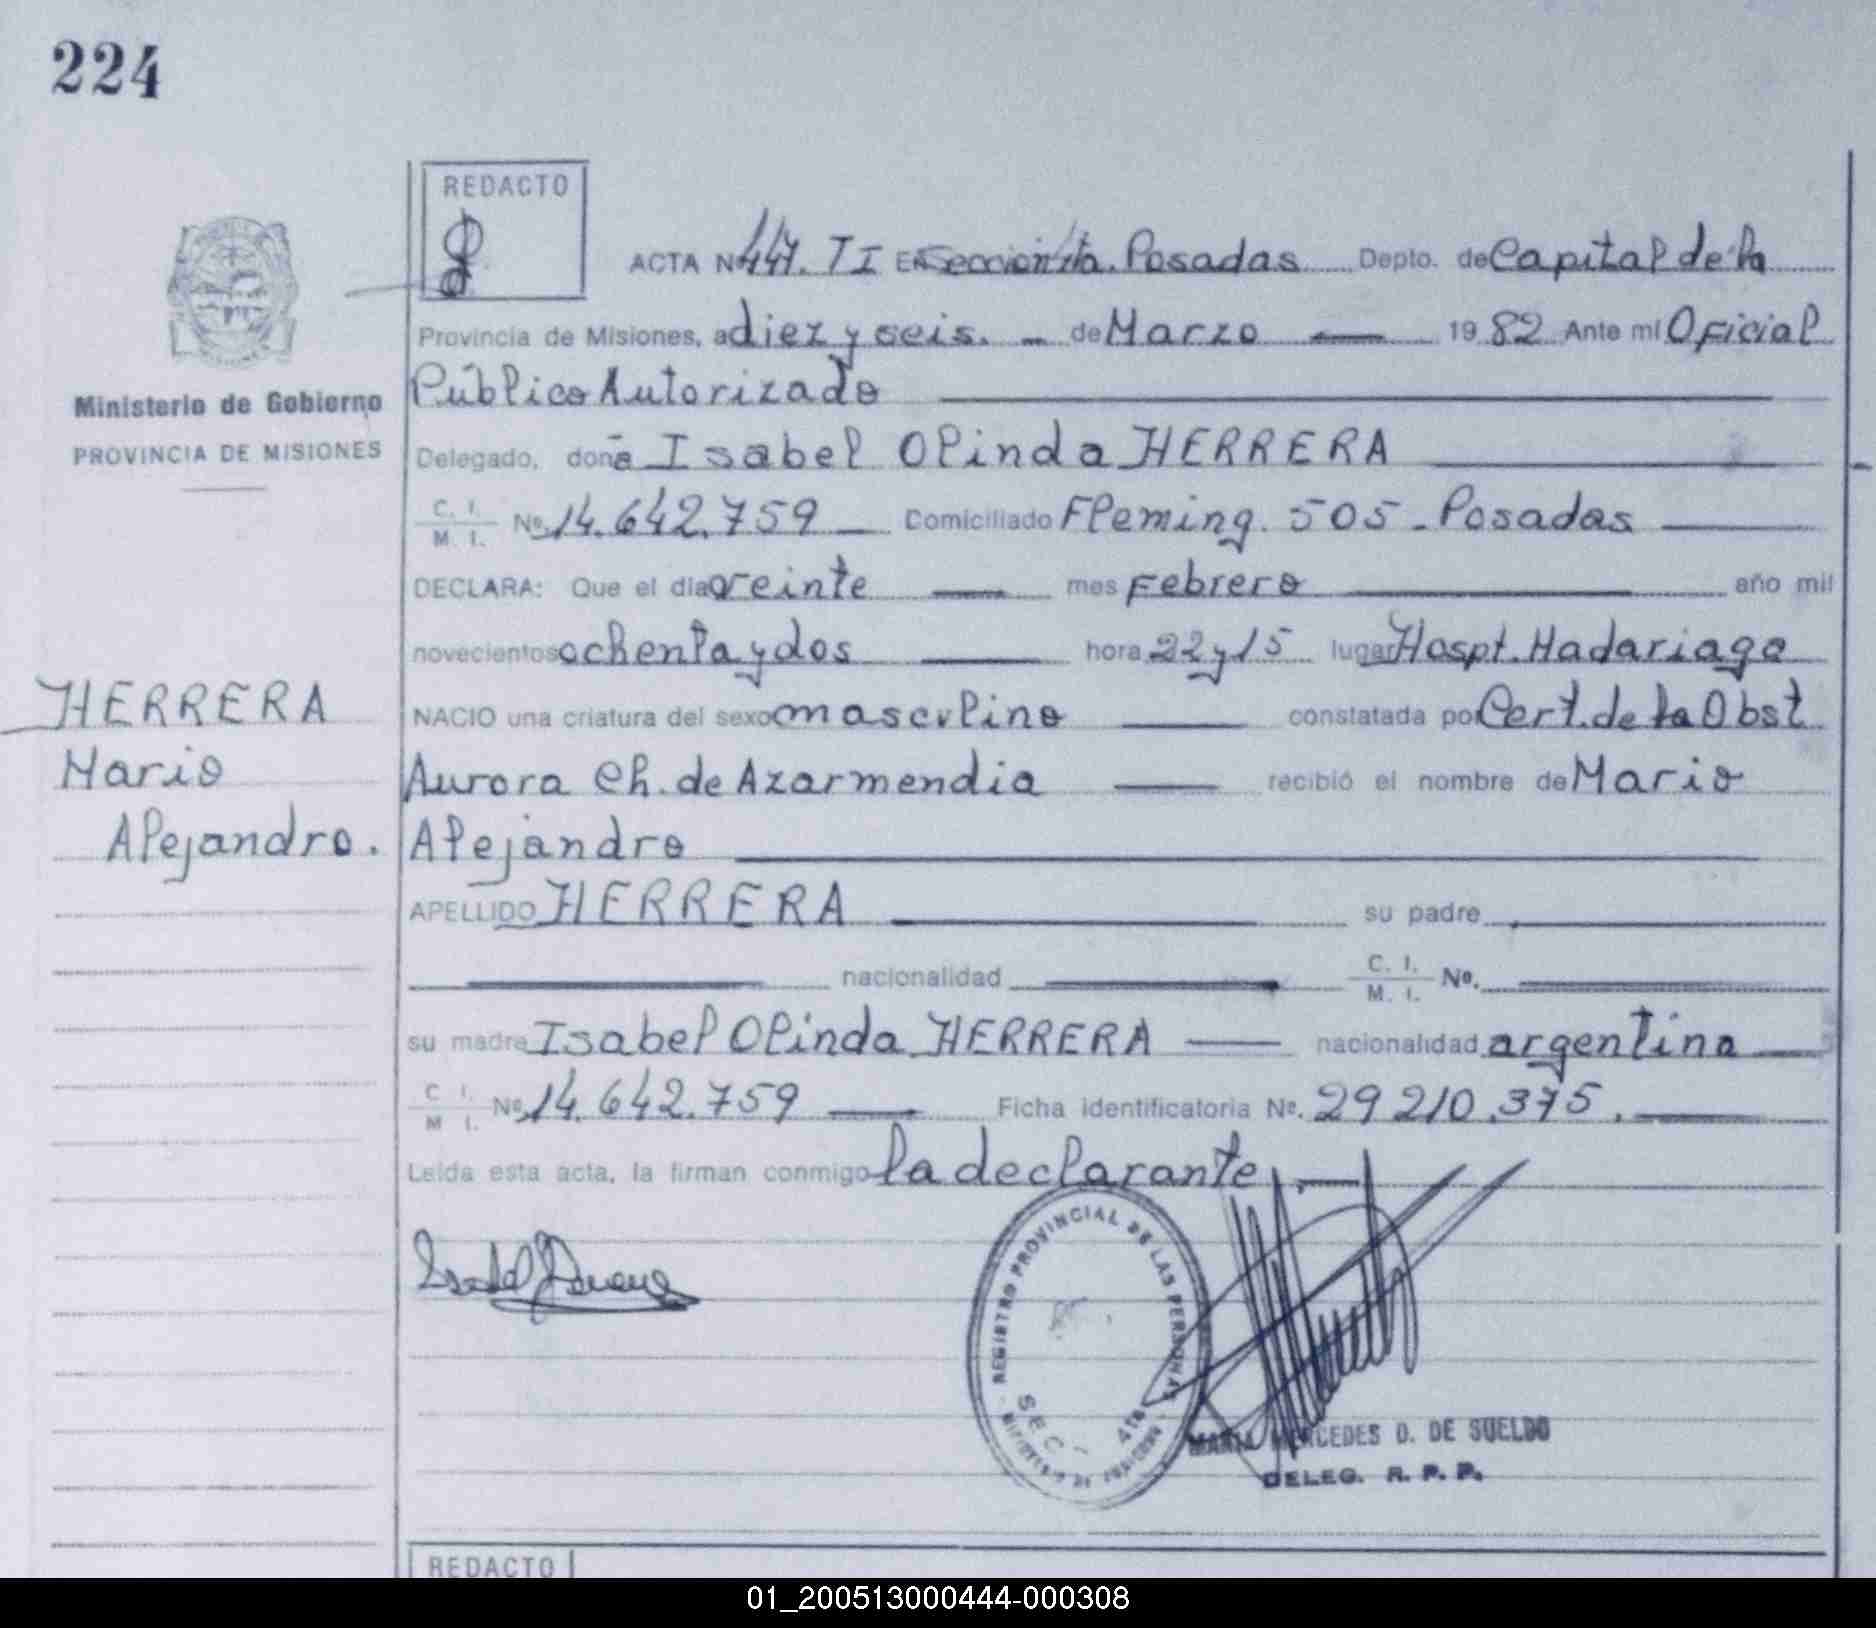 224
REDACTO
ACTA Nº 447. TI EN Sección 4ta. Posadas Depto. de Capital de la
Provincia de Misiones, a diez y seis. de Marzo 19 82 Ante mí Oficial
Público Autorizado
Ministerio de Gobierno
PROVINCIA DE MISIONES
Delegado, doña Isabel Olinda HERRERA
C. I.
M. I. Nº. 14.642.759 Domiciliado Fleming. 505 - Posadas
DECLARA: Que el día veinte mes Febrero año mil
novecientos ochenta y dos hora 22 y 15 lugar Hospt. Madariaga
HERRERA
Mario
Alejandro.
NACIO una criatura del sexo masculino constatada por Cert. de la Obst
Aurora Ch. de Azarmendia recibió el nombre de Mario
Alejandro
APELLIDO HERRERA su padre
nacionalidad C. I.
M. I. Nº.
su madre Isabel Olinda HERRERA nacionalidad argentina
C. I.
M. I. Nº 14.642.759 Ficha identificatoria Nº. 29 210.375.
Leída esta acta, la firman conmigo la declarante.
REGISTRO PROVINCIAL DE LAS PERSONAS
SEC. 4ta
MINISTERIO DE GOBIERNO
MARIA MERCEDES D. DE SUELDO
DELEG. R. P. P.
REDACTO
01_200513000444-000308